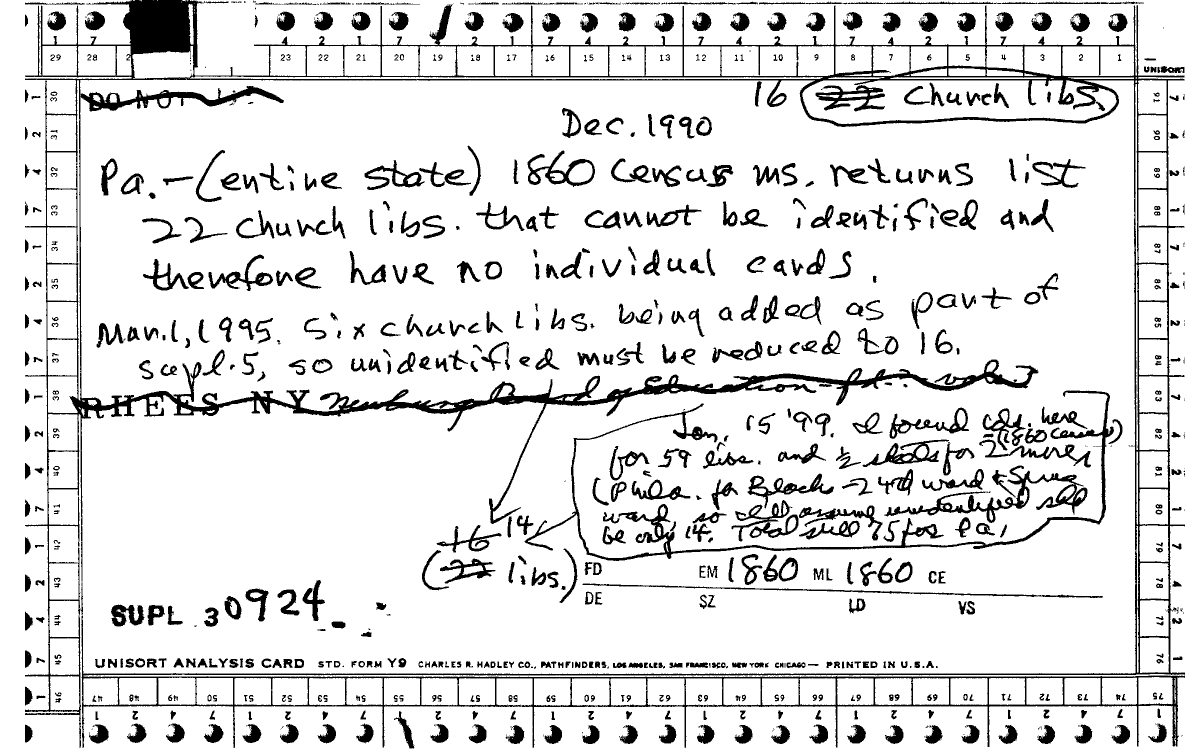 29 28 23 22 21 20 19 18 17 16 15 14 13 12 11 10 9 8 7 6 5 4 3 2 1
UNISORT
DO NOT
16 22 Church libs.
Dec. 1990
Pa.-(entire state) 1860 Census ms. returns list
22 Church libs. that cannot be identified and
therefore have no individual cards.
Mar. 1, 1995. Six church libs. being added as part of
supl. 5, so unidentified must be reduced to 16.
RHEES NY Newburg Board of Education
Jan. 15 '99. I found cds. here
(1860 census)
for 59 libs. and ½ sheets for 2 more
(Phila. for Blocks - 24th ward & Spruce
ward, so I'll assume unidentified shd
be only 14. Total still 75 for Pa.
16 14
(22 libs.)
FD EM 1860 ML 1860 CE
DE SZ LD VS
SUPL 30924
UNISORT ANALYSIS CARD STD. FORM Y9 CHARLES R. HADLEY CO., PATHFINDERS, LOS ANGELES, SAN FRANCISCO, NEW YORK CHICAGO — PRINTED IN U.S.A.
47 48 49 50 51 52 53 54 55 56 57 58 59 60 61 62 63 64 65 66 67 68 69 70 71 72 73 74 75